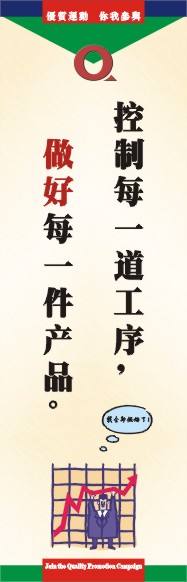 優質運動 你我參與
Q
控制每一道工序，
做好每一件产品。
Join the Quality Promotion Campaign